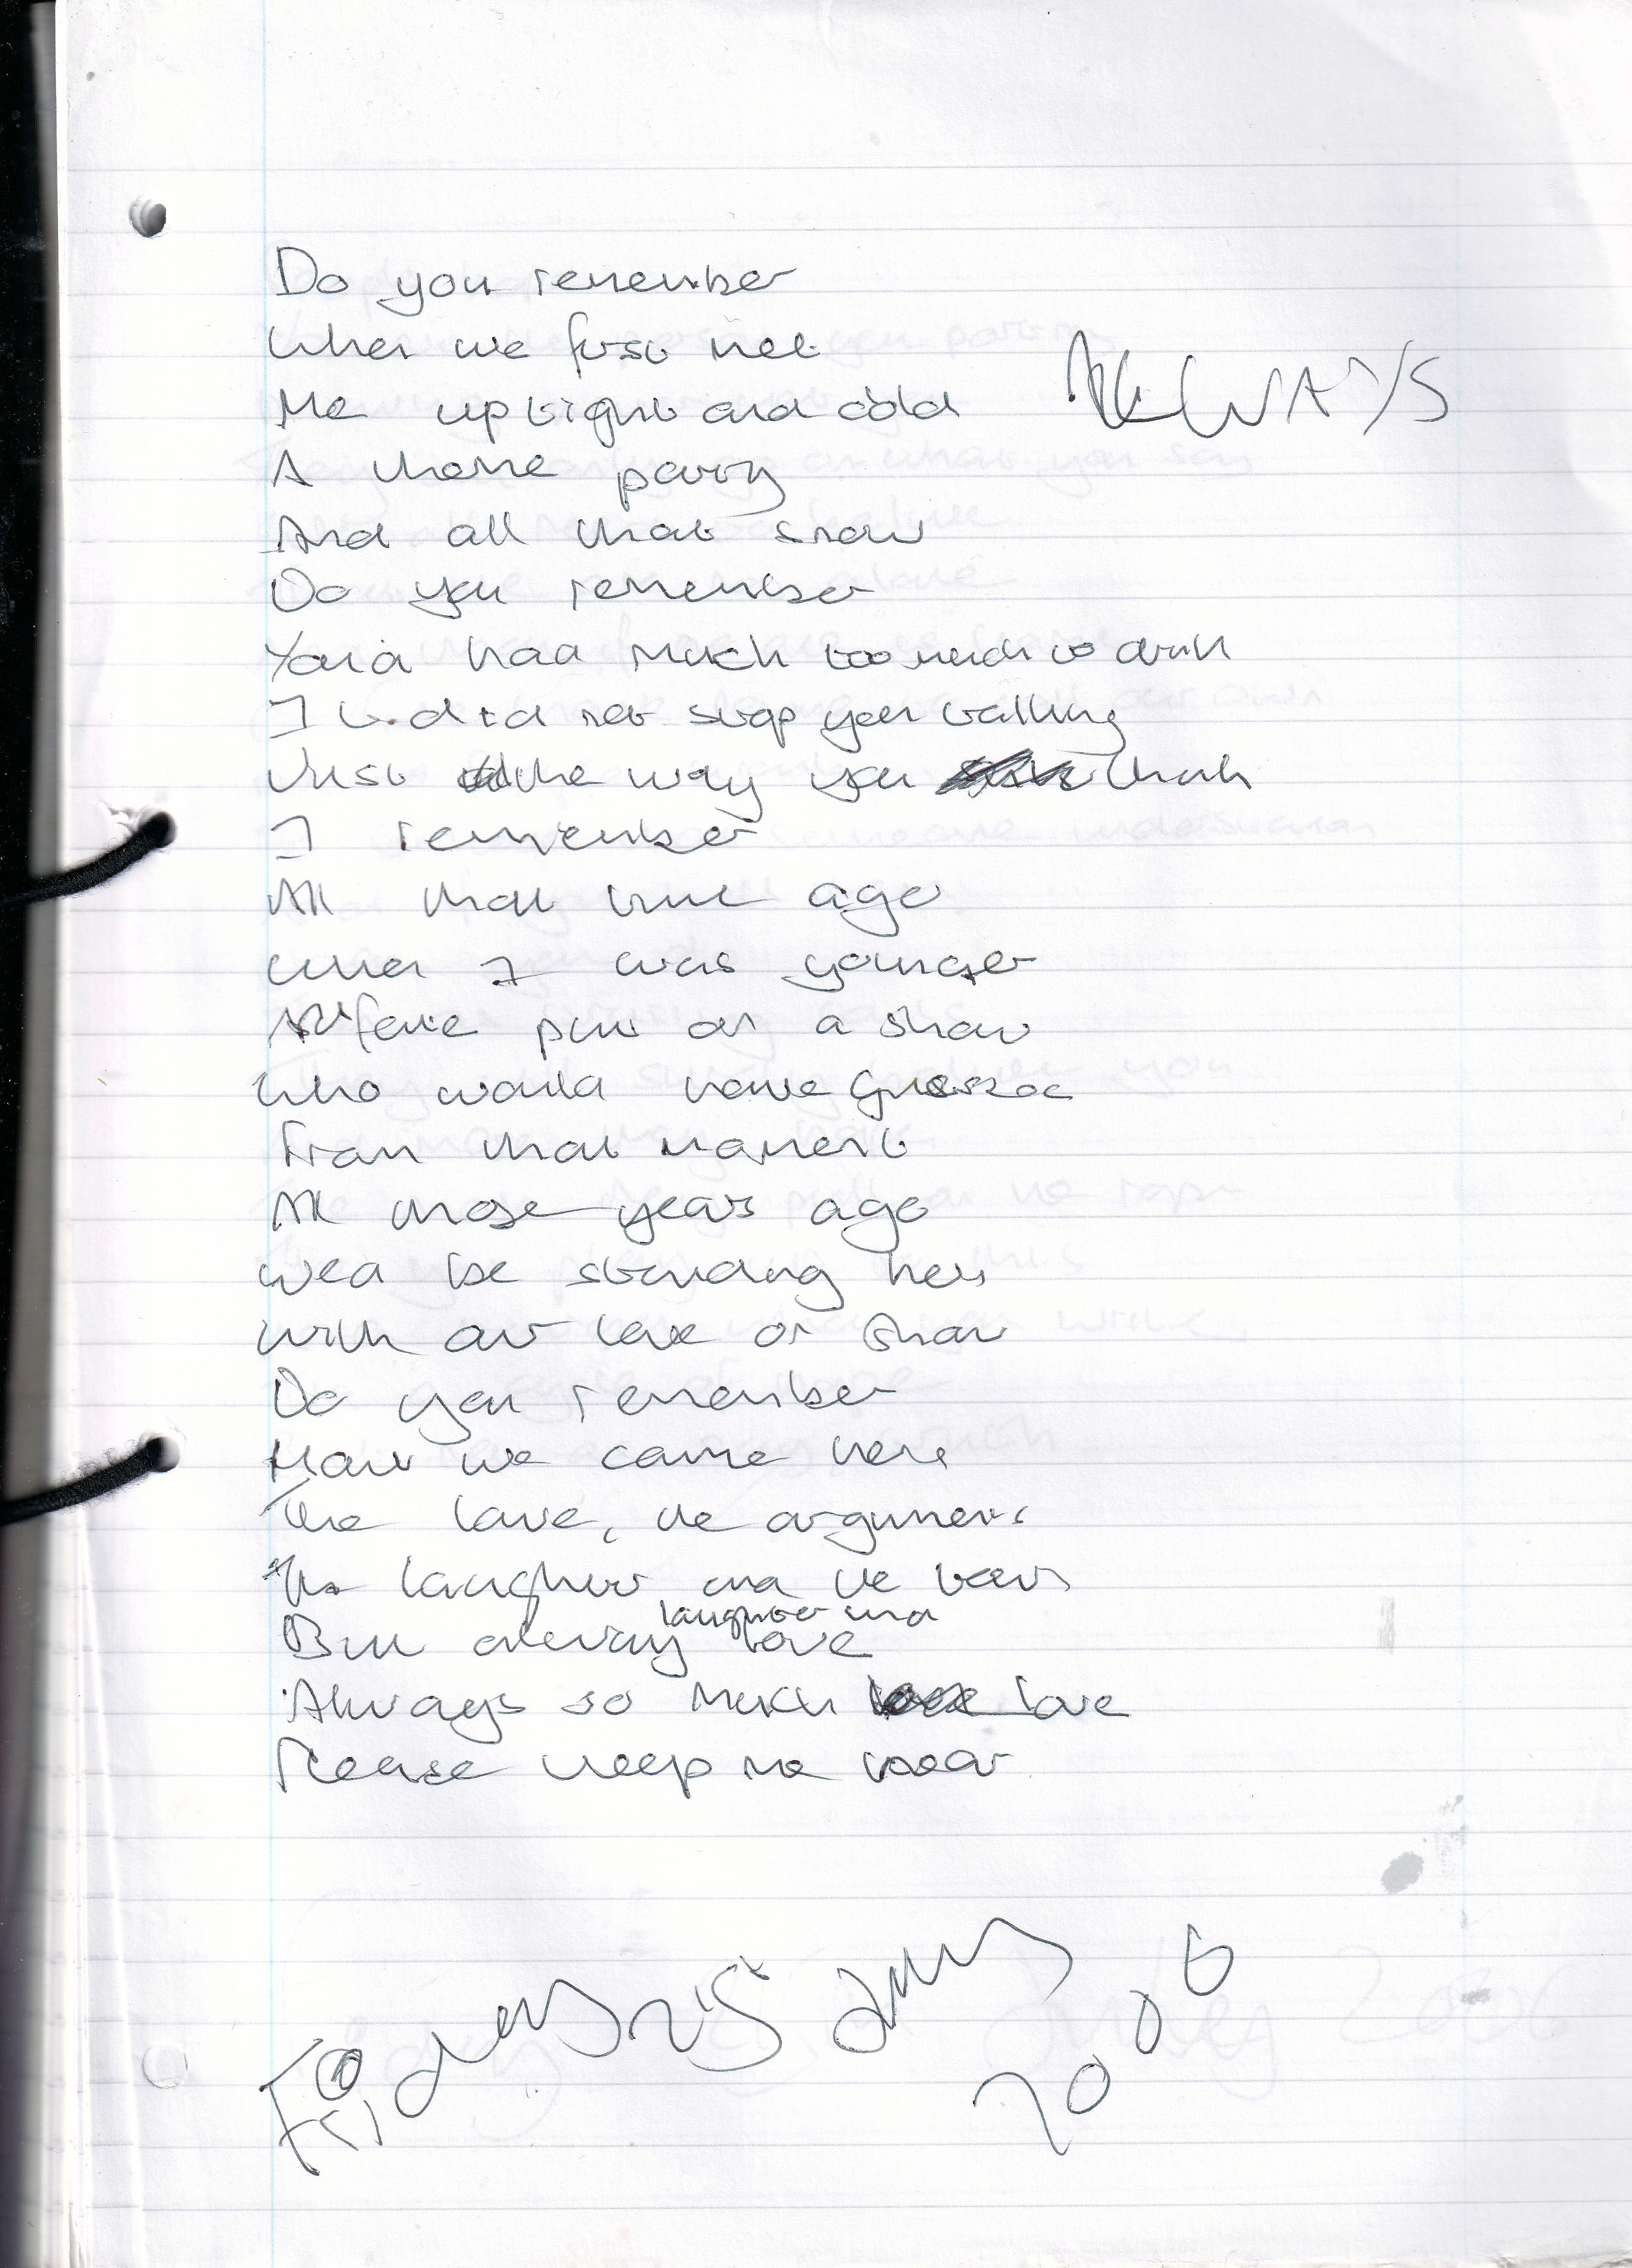 Do you remember
When we first met
Me uptight and cold
ALWAYS
A theme party
And all that snow
Do you remember
You'd had much too much to drink
I did not stop you talking
Just the way you think
I remember
All that time ago
When I was younger
put on a show
Who would have guessed
From that moment
All those years ago
We'd be standing here
With our love on show
Do you remember
How we came here
The love, the arguments
The laughter and the tears
laughter and
But always love
Always so much love
Please keep me near
Friday
2006